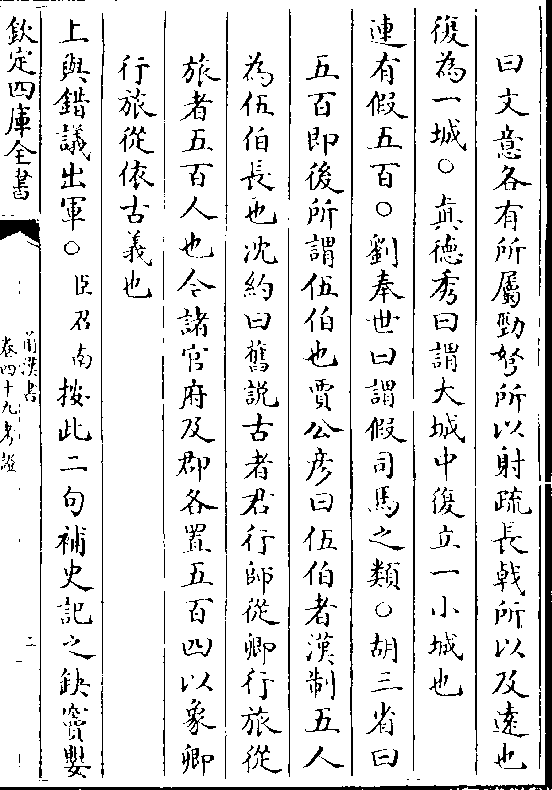 曰文意各有所屬勁弩所以射疏長戟所以及遠也
復為一城○真德秀曰謂大城中復立一小城也
連有假五百○劉奉世曰謂假司馬之類○胡三省曰
五百即後所謂伍伯也賈公彦曰伍伯者漢制五人
為伍伯長也沈約曰舊説古者君行師從卿行旅從
旅者五百人也今諸官府及郡各置五百四以象卿
行旅從依古義也
上與錯議出軍○臣召南按此二句補史記之缺竇嬰
欽定四庫全書
前漢書
卷四十九考證
二